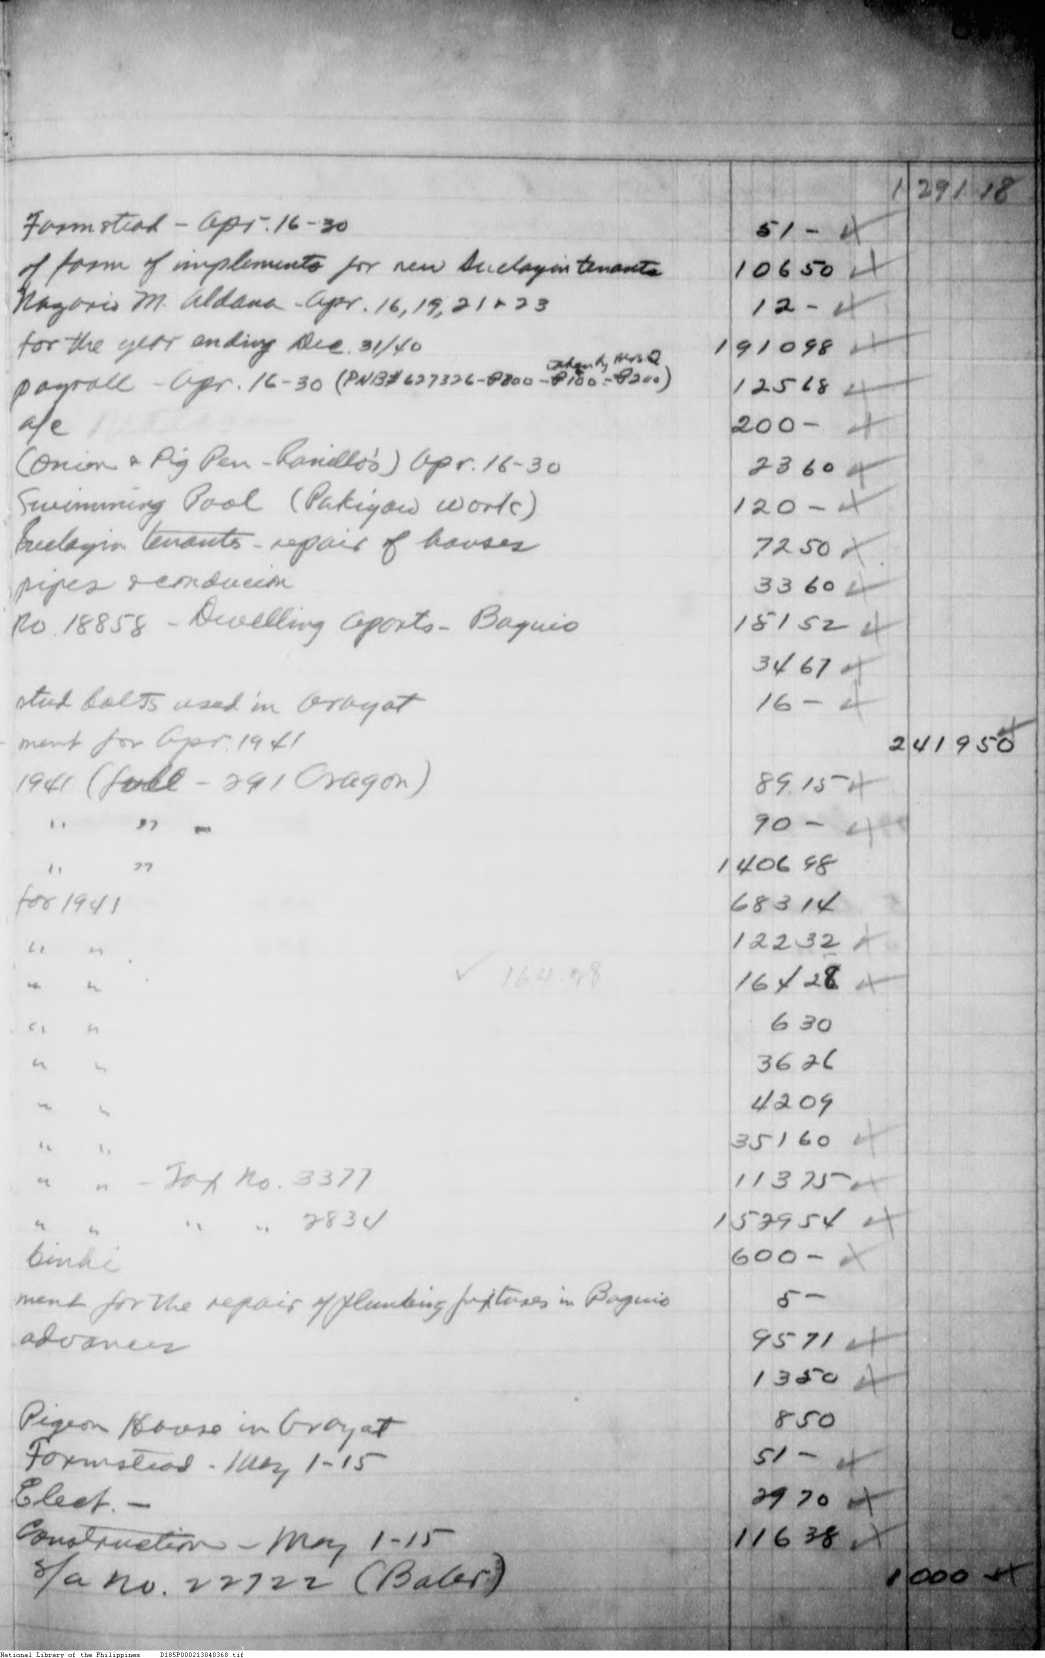 1 291 18
Farmstead - Apr. 16-30 51 -
of farm of implements for new Buclayin tenants 106 50
Nazario M. Aldana - Apr. 16, 19, 21 & 23 12 -
for the year ending Dec. 31/40 1910 98
taken by Mrs Q
payroll - Apr. 16-30 (PNB# 627326 - ₱300 - ₱100 - ₱200) 125 68
a/c 200 -
(Onion & Pig Pen - ) Apr. 16-30 23 60
Swimming Pool (Pakiyaw work) 120 -
Buclayin tenants - repair of houses 72 50
pipes & 33 60
No. 18858 - Dwelling Aparts - Baguio 151 52
34 67
stud bolts used in Arayat 16 -
ment for Apr. 1941 2 419 50
1941 (full - 291 Oragon) 89.15
" " - 90 -
" " 1406 98
for 1941 683 14
" " 122 32
" " ✓ 164.28 164 28
" " 6 30
" " 36 26
" " 42 09
" " 351 60
" " - Tax No. 3377 113 75
" " " " 2834 1529 54
binhi 600 -
ment for the repair of plumbing fixtures in Baguio 5 -
advances 95 71
13 50
Pigeon House in Arayat 8 50
Farmstead - May 1-15 51 -
Elect. - 29 70
Construction - May 1-15 116 38
s/a No. 22722 (Baler) 1 000 -
National Library of the Philippines D185P000213040368.tif